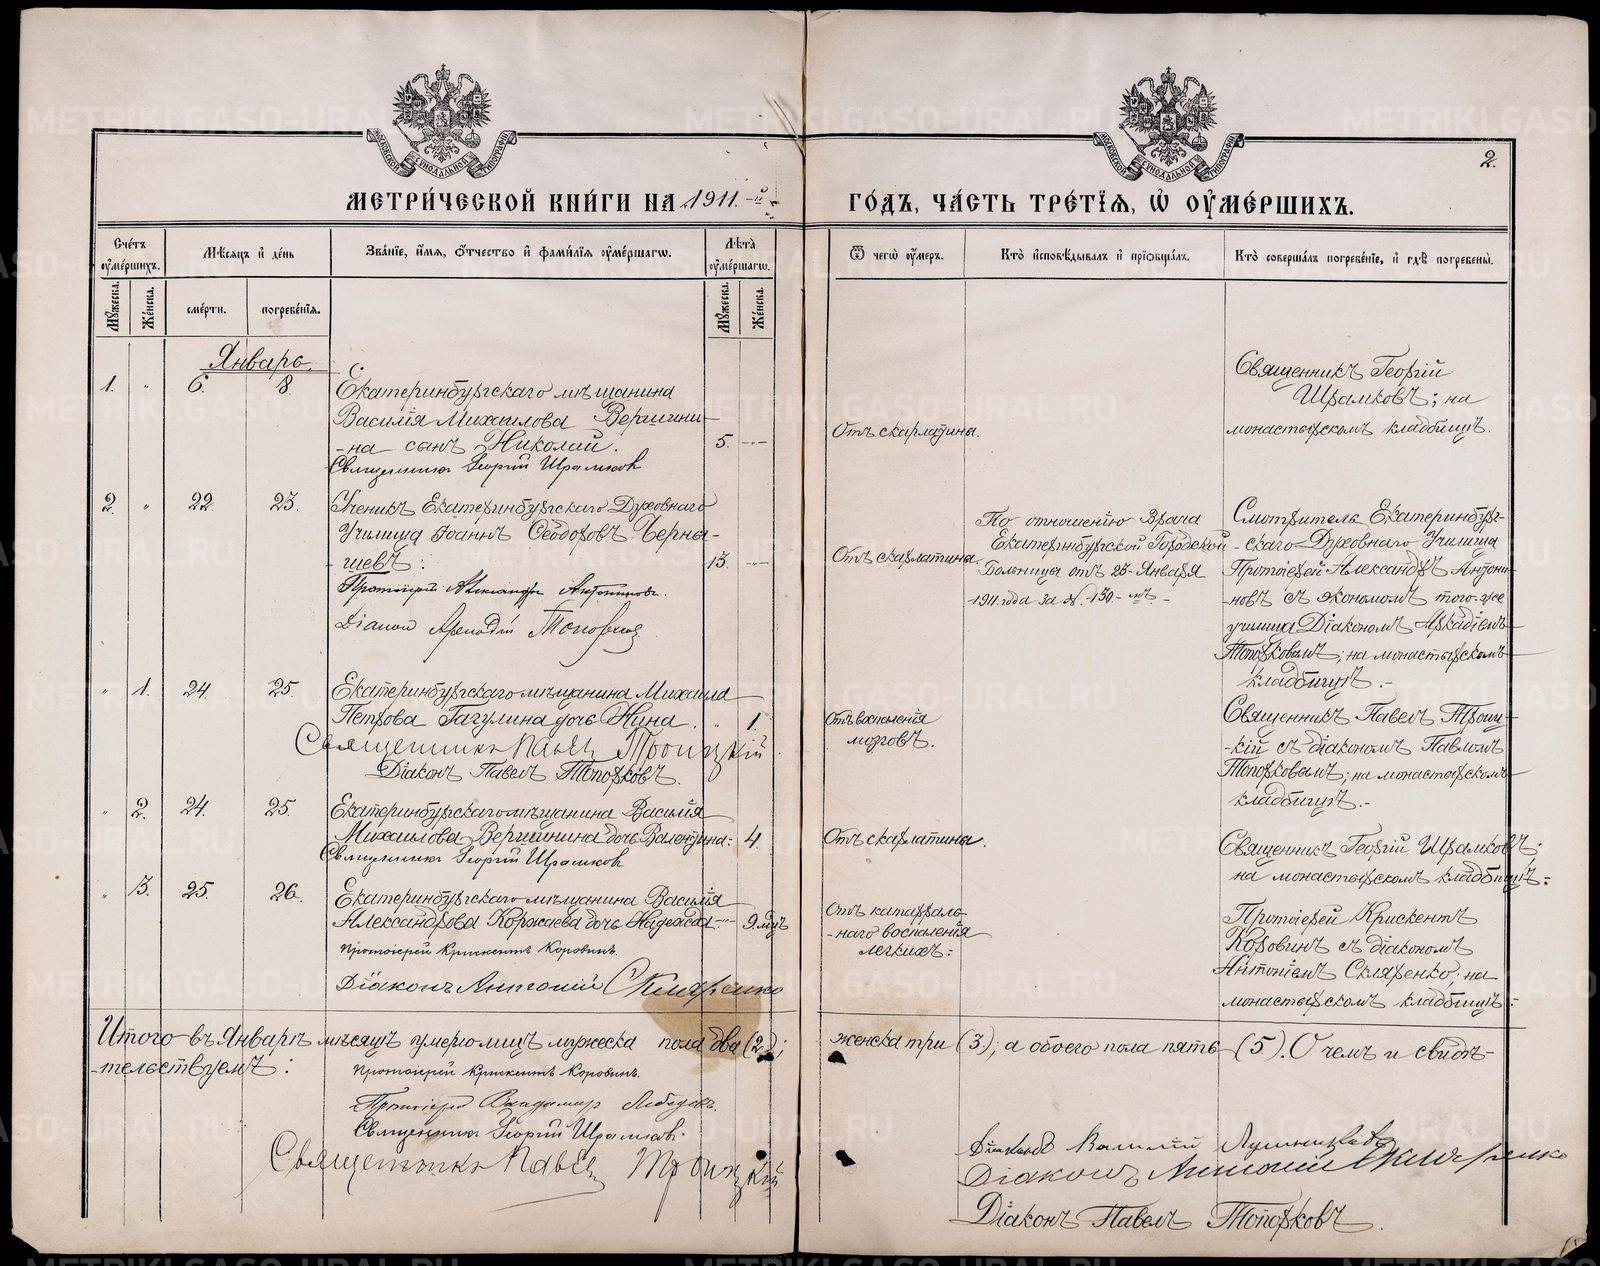 МЕТРИ́ЧЕСКОЙ КНИ́ГИ НА 1911-й ГО́ДЪ, ЧА́СТЬ ТРЕ́ТЇѦ, Ѡ҆ ОУ҆МЕ́РШИХЪ.
2.
Сче́тъ оу҆ме́ршихъ.
Мѣ́сяцъ и҆ де́нь
Зва́нїе, и҆́мя, ѻ҆́тчество и҆ фами́лїя оу҆ме́ршагѡ.
Лѣ́та оу҆ме́ршагѡ.
Ѿ чегѡ̀ оу҆́меръ.
Кто̀ и҆сповѣ́дывалъ и҆ прїѡбща́лъ.
Кто̀ соверша́лъ погребе́нїе, и҆ гдѣ̀ погребены̀.
Му́жеска.
Же́нска.
сме́рти.
погребе́нїя.
Му́жеска.
Же́нска.
Январь.
1. " 6. 8.
Екатеринбургскаго мѣщанина
Василія Михаилова Вершини-
-на сынъ Николай.
5.
Священникъ Георгій Шрамковъ
Отъ скарлатины.
Священникъ Георгій
Шрамковъ; на
монастырскомъ кладбищѣ.
2. " 22. 23.
Ученикъ Екатеринбургскаго Духовнаго
Училища Іоаннъ Ѳеодоровъ Черны-
-шевъ:
13.
Протоіерей Александръ Антониновъ.
Діаконъ Аркадій Топорковъ
Отъ скарлатины
По отношенію Врача
Екатеринбургской Городской
Больницы отъ 23 Января
1911 года за № 150-мъ.
Смотритель Екатеринбург-
-скаго Духовнаго Училища
Протоіерей Александръ Антони-
-новъ съ экономомъ того-же
училища Діакономъ Аркадіемъ
Топорковымъ; на монастырскомъ
кладбищѣ.
" 1. 24. 25.
Екатеринбургскаго мѣщанина Михаила
Петрова Гагулина дочь Нина. " 1.
Священникъ Павелъ Троицкій
Діаконъ Павелъ Топорковъ.
Отъ воспаленія
мозговъ.
Священникъ Павелъ Троиц-
-кій съ діакономъ Павломъ
Топорковымъ; на монастырскомъ
кладбищѣ.
" 2. 24. 25.
Екатеринбургскаго мѣщанина Василія
Михаилова Вершинина дочь Валентина: 4.
Священникъ Георгій Шрамковъ
Отъ скарлатины.
Священникъ Георгій Шрамковъ:
на монастырскомъ кладбищѣ:
" 3. 25. 26.
Екатеринбургскаго мѣщанина Василія
Александрова Коржаева дочь Надежда 9 мцъ
Протоіерей Крискентъ Коровинъ.
Діаконъ Антоній Скляренко
Отъ катарраль-
-наго воспаленія
легкихъ:
Протоіерей Крискентъ
Коровинъ съ діакономъ
Антоніемъ Скляренко; на
монастырскомъ кладбищѣ:
Итого въ Январѣ мѣсяцѣ умершихъ мужеска пола два (2.); женска три (3.); а обоего пола пять (5). О чемъ и свидѣ-
-тельствуемъ:
Протоіерей Крискентъ Коровинъ.
Протоіерей Владимир Лебедевъ.
Священникъ Георгій Шрамковъ.
Священникъ Павелъ Троицкій
Діаконъ Василій
Діаконъ Антоній Скляренко
Діаконъ Павелъ Топорковъ.